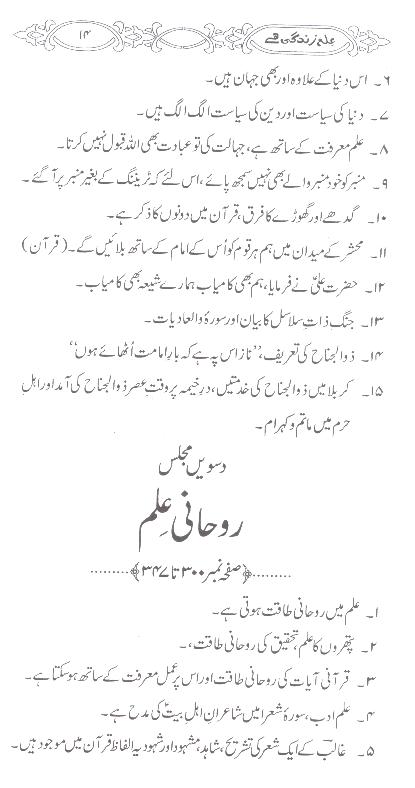 علم زندگی ہے
۱۴
۶۔ اس دنیا کے علاوہ اور بھی جہان ہیں۔
۷۔ دنیا کی سیاست اور دین کی سیاست الگ الگ ہیں۔
۸۔ علم معرفت کے ساتھ ہے، جہالت کی تو عبادت بھی اللہ قبول نہیں کرتا۔
۹۔ منبر کو خود منبر والے بھی نہیں سمجھ پائے، اس لئے کہ ٹریننگ کے بغیر منبر پر آ گئے۔
۱۰۔ گدھے اور گھوڑے کا فرق، قرآن میں دونوں کا ذکر ہے۔
۱۱۔ محشر کے میدان میں ہم ہر قوم کو اُس کے امام کے ساتھ بلائیں گے۔ (قرآن)
۱۲۔ حضرت علیؑ نے فرمایا، ہم بھی کامیاب ہمارے شیعہ بھی کامیاب۔
۱۳۔ جنگ ذاتِ سلاسل کا بیان اور سورۂ والعادیات۔
۱۴۔ ذوالجناح کی تعریف، ”ناز اس پہ ہے کہ بارِ امامت اُٹھائے ہوں“
۱۵۔ کربلا میں ذوالجناح کی خدمتیں، درِ خیمہ پر وقتِ عصر ذوالجناح کی آمد اور اہلِ
حرم میں ماتم و کہرام۔
دسویں مجلس
روحانی علم
.........﴿صفحہ نمبر ۳۰۰ تا ۳۴۷﴾.........
۱۔ علم میں روحانی طاقت ہوتی ہے۔
۲۔ پتھروں کا علم، تحقیق کی روحانی طاقت،۔
۳۔ قرآنی آیات کی روحانی طاقت اور اس پر عمل معرفت کے ساتھ ہو سکتا ہے۔
۴۔ علم ادب، سورۂ شعرا میں شاعرانِ اہلِ بیتؑ کی مدح ہے۔
۵۔ غالبؔ کے ایک شعر کی تشریح، شاہد، مشہود اور شہود یہ الفاظ قرآن میں موجود ہیں۔